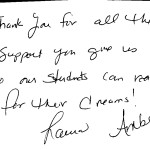 Thank you for all the
support you give us
so our students can rea
for their dreams!